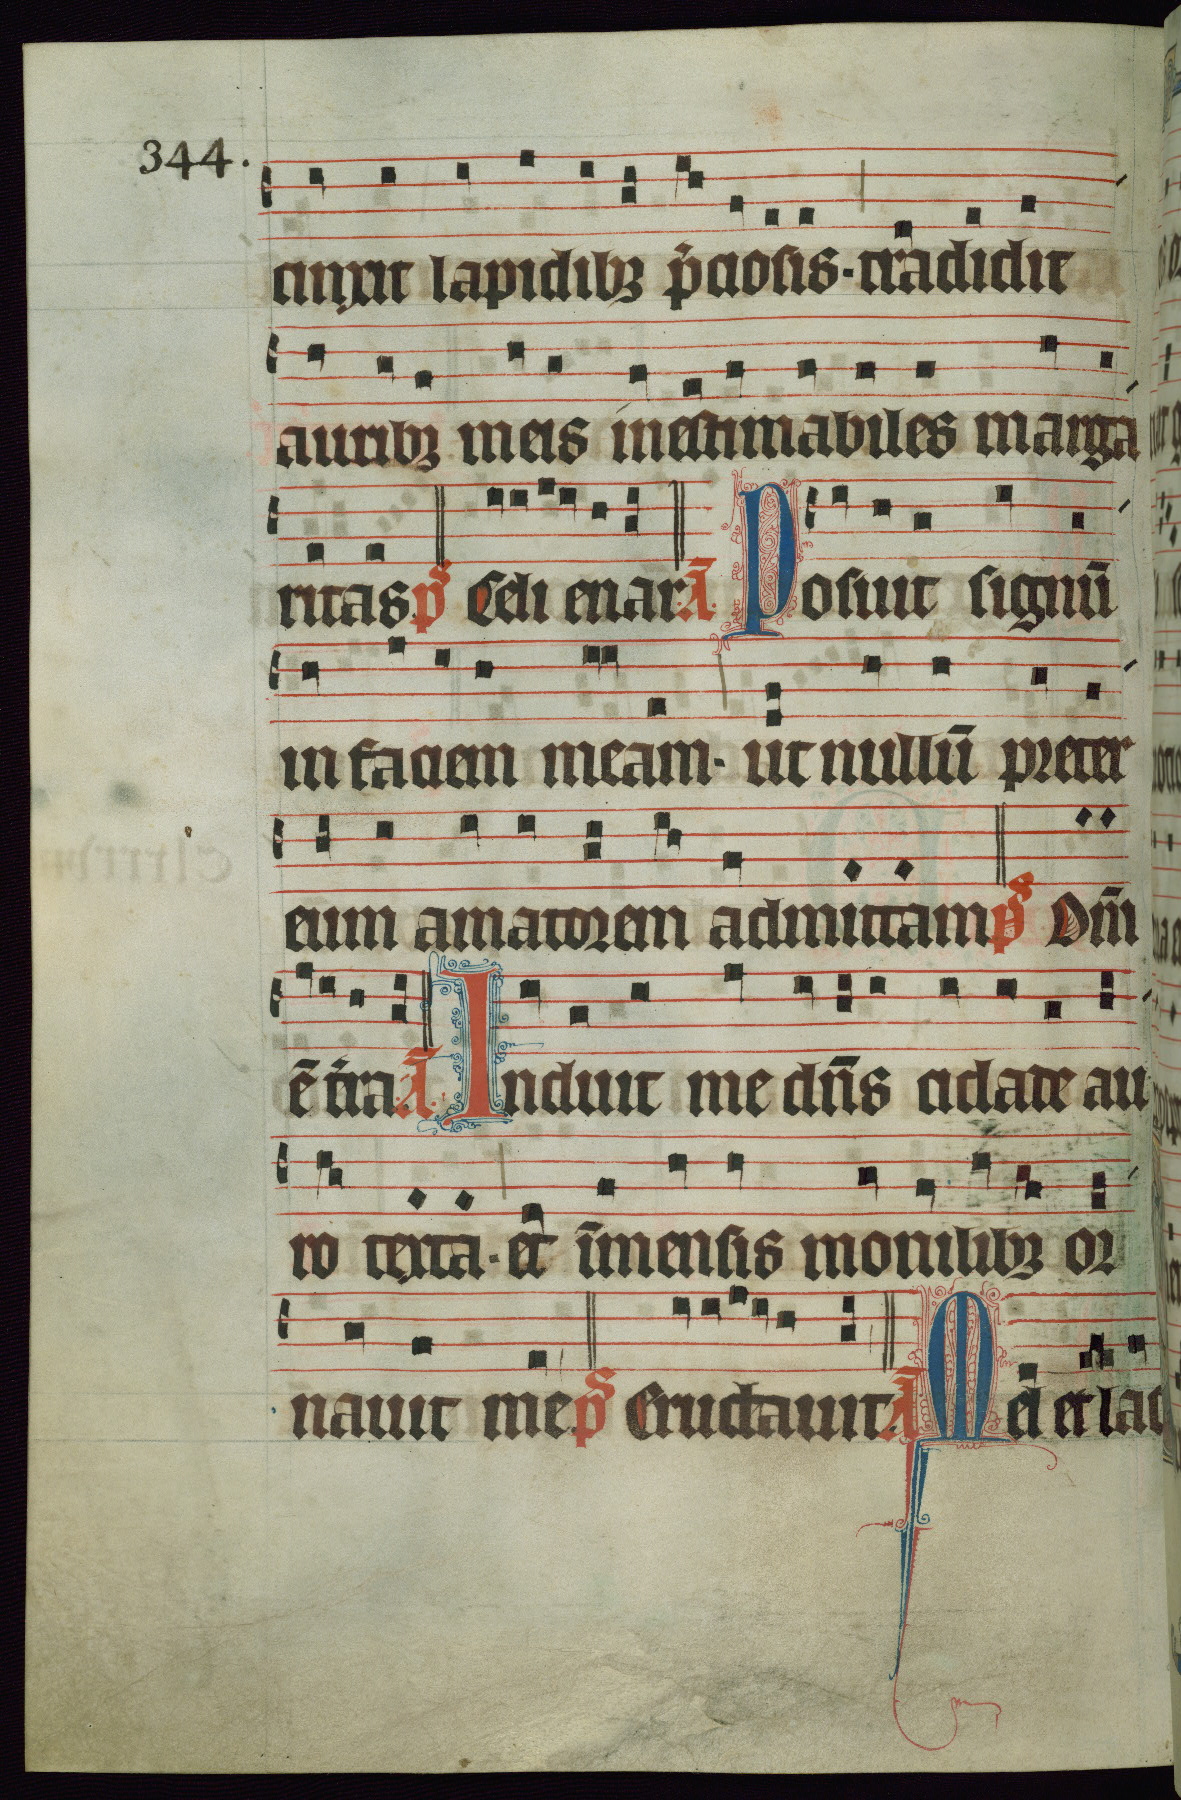 344.
cinxit lapidibꝫ p̄ciosis · tradidit
auribꝫ meis inestimabiles marga
ritas pˢ Celi enar Ā Posuit signū
in faciem meam · ut nullū preter
eum amatorem admittam pˢ Dn̄i
ē t̄ra Ā Induit me dn̄s ciclate au
ro texta · et īmensis monilibꝫ or
nauit me pˢ Eructauit Ā Mel et lac